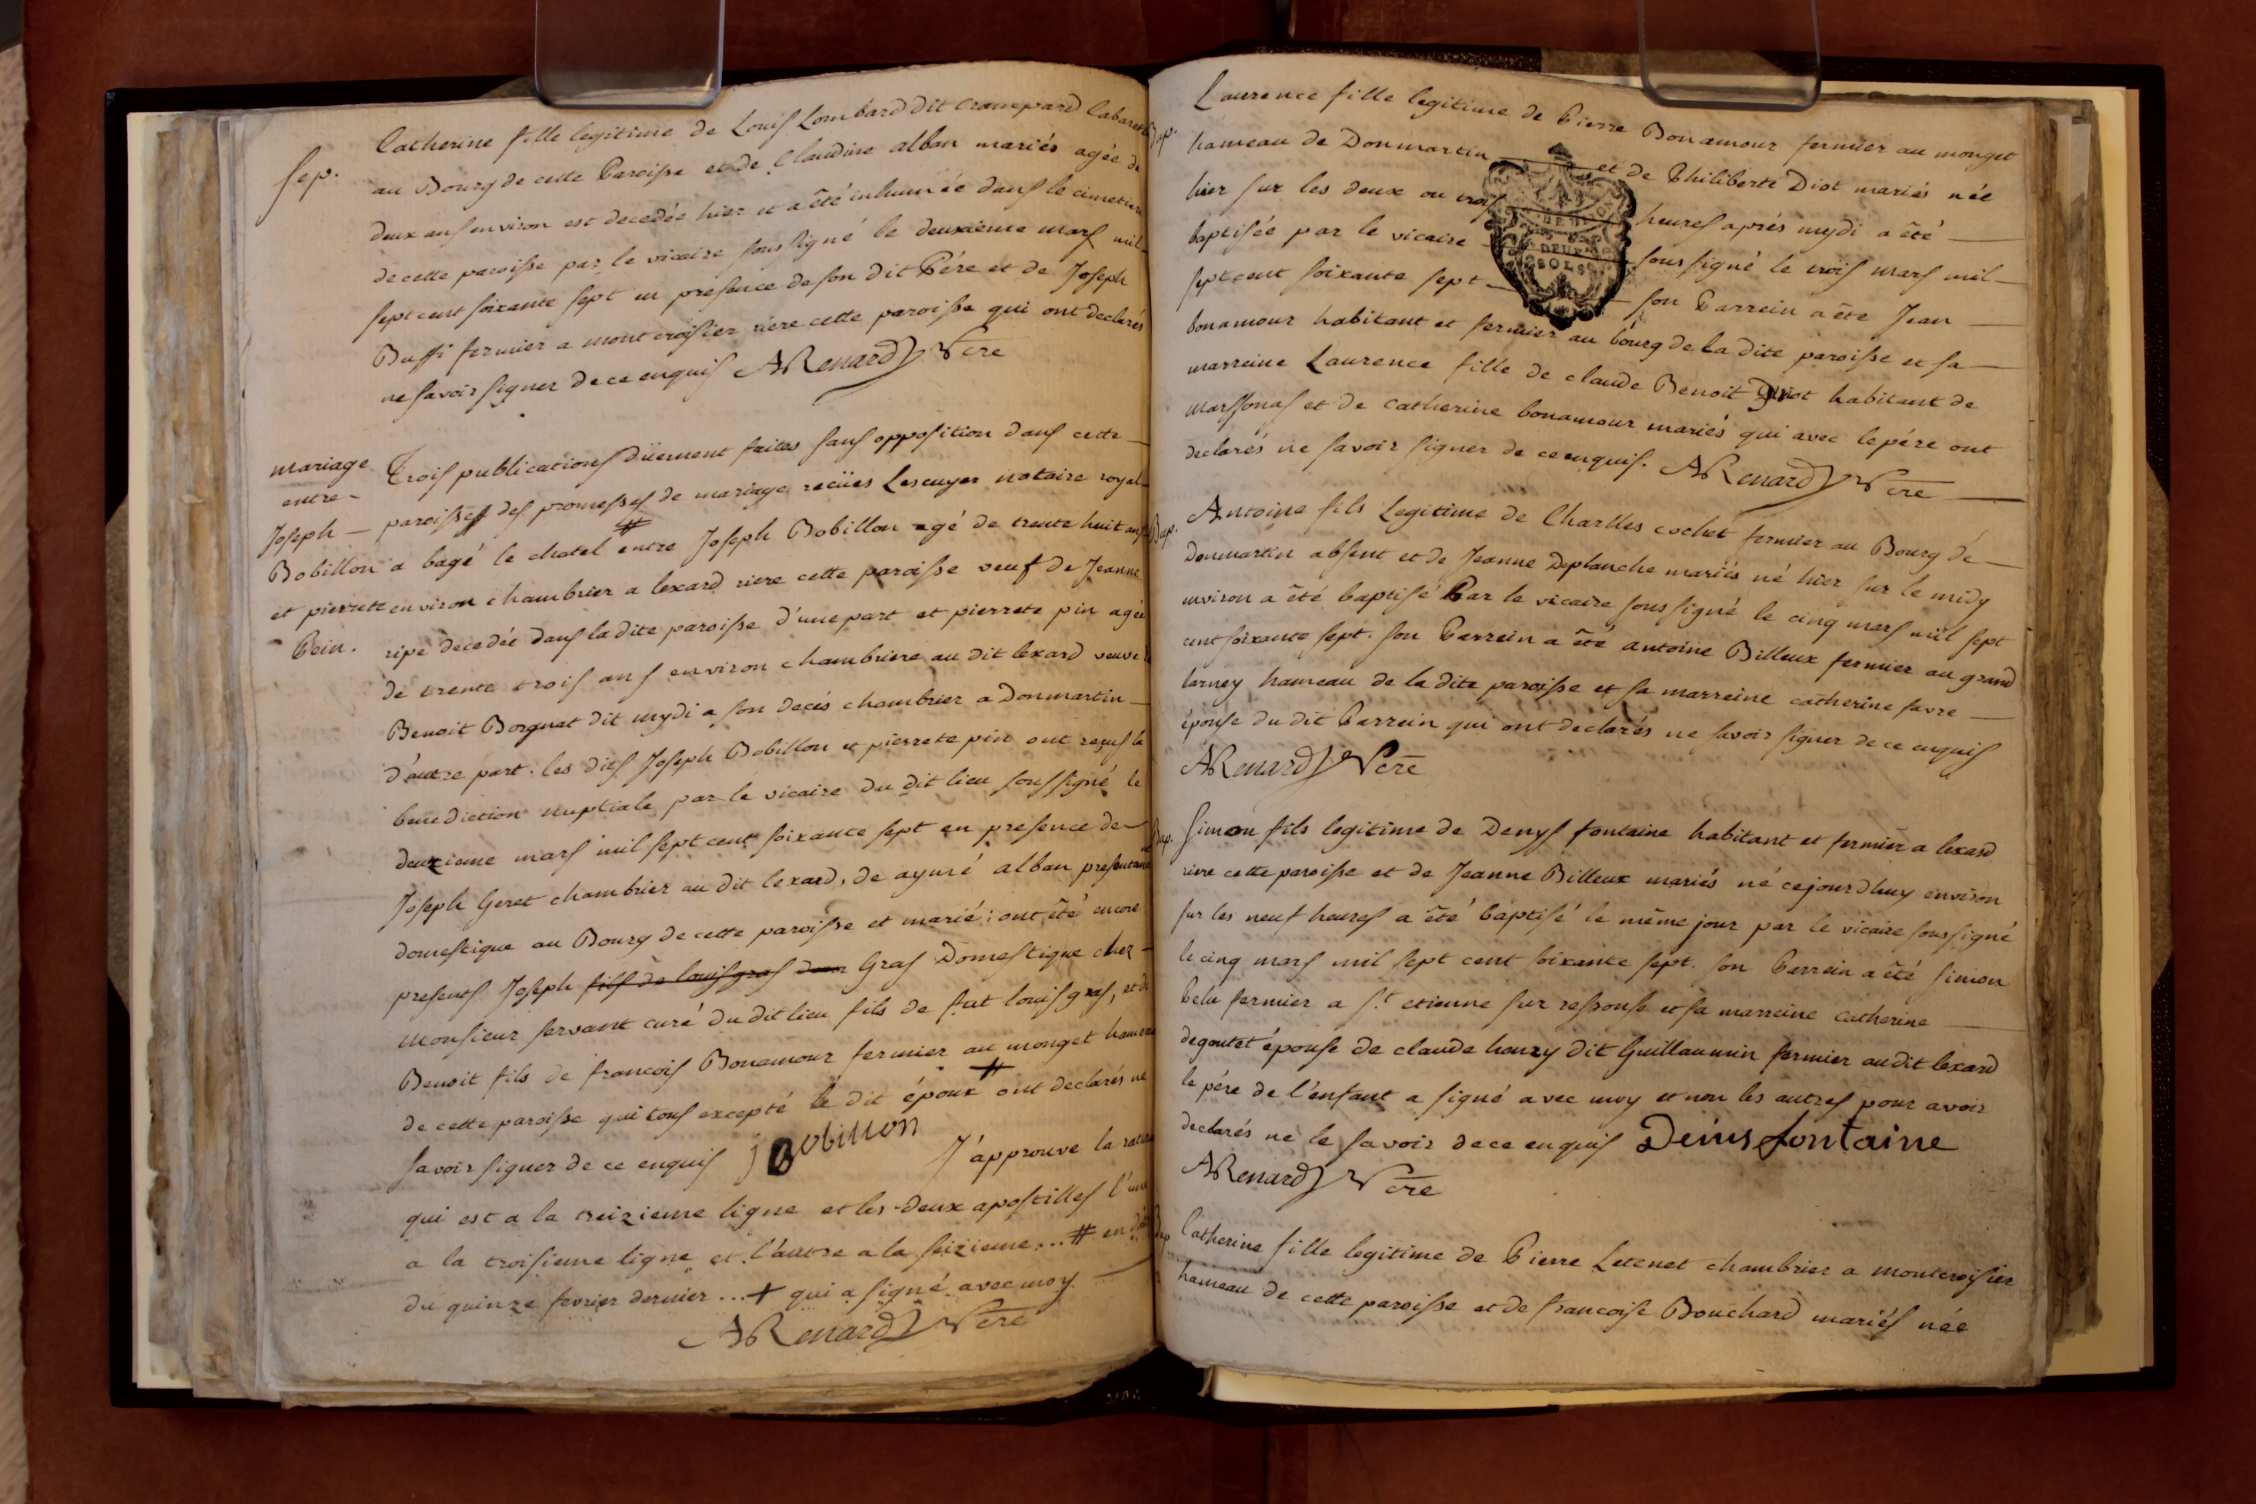 Sep.
Catherine fille legitime de Louis Lombard dit Crampard Cabaret
au Bourg de cette Paroisse et de Claudine alban mariés agée de
deux ans environ est decedée hier et a êté inhumée dans le cimetiere
de cette paroisse par le vicaire soussigné le deuxieme mars mil
sept cent soixante sept en presence de son dit Pére et de Joseph
Buffi fermier a montcroisier riere cette paroisse qui ont declarés
ne savoir signer de ce enquis ARenard Vcre
mariage
entre
Joseph
Bobillon
et pierrete
Pein.
Trois publications düement faites sans opposition dans cette
paroisse des promesses de mariage recües Lescuyer notaire royal
a bagé le chatel # entre Joseph Bobillon agé de trente huit ans
environ chambrier a lexard riere cette paroisse veuf de Jeanne
ripe decedée dans la dite paroisse d'une part et pierrete pin agée
de trente trois ans environ chambriere au dit lexard veuve
Benoit Borgnat dit mydi a son decés chambrier a Donmartin
d'autre part. les dits Joseph Bobillon et pierrete pin ont reçus la
benediction nuptiale par le vicaire du dit lieu soussigné le
deuxieme mars mil sept cent soixante sept en presence de
Joseph Geret chambrier au dit lexard, de aymé alban
domestique au Bourg de cette paroisse et marié; ont êté encore
presents Joseph fils de louis gras Gras Domestique chez
monsieur servant curé du dit lieu fils de fut louis gras, et de
Benoit fils de francois Bonamour fermier au monget hameau
de cette paroisse qui tous excepté le dit époux # ont declarés ne
savoir signer de ce enquis jBobillon J'approuve la
qui est a la treizieme ligne et les deux apostilles l'une
a la troisieme ligne et l'autre a la seizieme... # en
du quinze fevrier dernier... + qui a signé avec moy
ARenard Vcre
Bap.
Laurence fille legitime de Pierre Bonamour fermier au monget
hameau de Donmartin et de Philiberte Diot mariés née
hier sur les deux ou trois heures aprés mydi a êté
baptisée par le vicaire soussigné le trois mars mil
sept cent soixante sept son Parrein a été Jean
DEUX
SOLS
bonamour habitant et fermier au bourg de la dite paroisse et sa
marreine Laurence fille de claude Benoit Diot habitant de
marssonas et de catherine bonamour mariés qui avec le pére ont
declarés ne savoir signer de ce enquis. ARenard Vcre
Bap.
Antoine fils Legitime de Charlles cochet fermier au Bourg de
donmartin absent et de Jeanne Deplanche mariés né hier sur le midy
environ a été baptisé Par le vicaire soussigné le cinq mars mil sept
cent soixante sept. son Parrein a êté antoine Billeux fermier au grand
larney hameau de la dite paroisse et sa marreine catherine favre
épouse du dit Parrein qui ont declarés ne savoir signer de ce enquis
ARenard Vcre
Bap.
Simon fils legitime de Denys fontaine habitant et fermier a lexard
riere cette paroisse et de Jeanne Billeux mariés né cejourdhuy environ
sur les neuf heures a êté baptisé le même jour par le vicaire soussigné
le cinq mars mil sept cent soixante sept. son Parrein a êté simon
belu fermier a st etienne sur ressouse et sa marreine catherine
degoutet épouse de claude honzy dit Guillaumin fermier au dit lexard
le pére de l'enfant a signé avec moy et non les autres pour avoir
declarés ne le savoir de ce enquis Denis fontaine
ARenard Vcre
Bap.
Catherine fille legitime de Pierre Letenet chambrier a montcroisier
hameau de cette paroisse et de francoise Bouchard mariés née